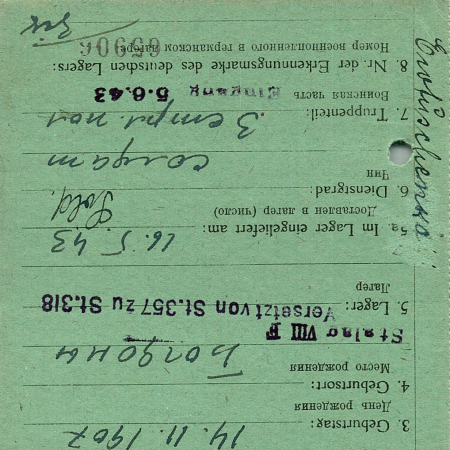 14. 11. 1907
3. Geburtstag:
День рождения
4. Geburtsort:
Место рождения
Stalag VIII F
5. Lager: Versetzt von St.357 zu St.318
Лагер
5a. Im Lager eingeliefert am: 16. 5. 43
Доставлен в лагер (число)
Sold.
6. Dienstgrad: солдат
Чин
7. Truppenteil: 3
Воинская часть Eingang 5.6.43
8. Nr. der Erkennungsmarke des deutschen Lagers:
Номер военнопленного в германском лагере